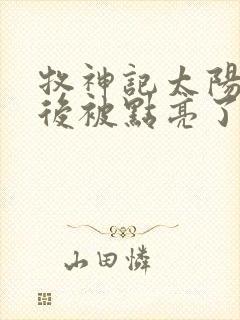 牧神記太陽
後被點亮了
山田憐